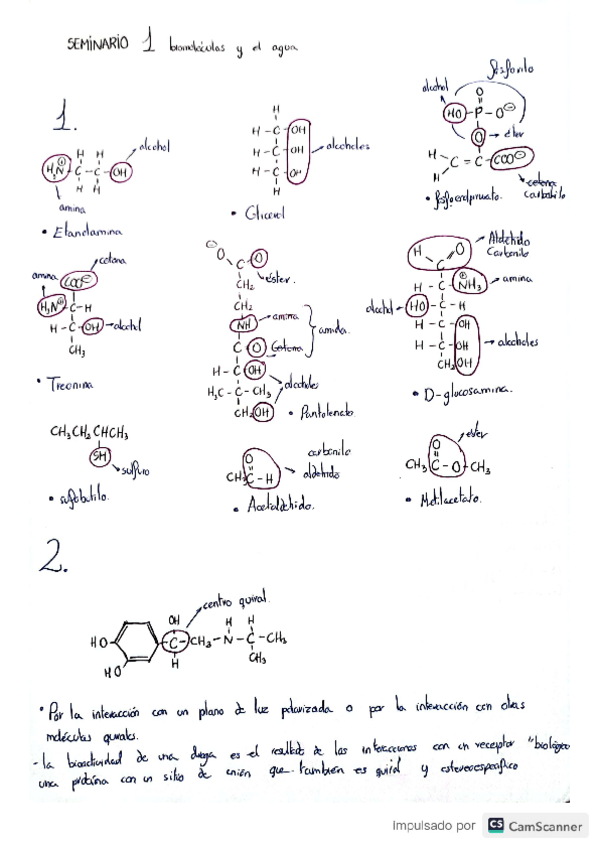 SEMINARIO 1 biomoléculas y el agua
1.
H H
H₃N⊕ - C - C - OH
H H
alcohol
amina
• Etanolamina
H
H - C - OH
H - C - OH
H - C - OH
H
alcoholes
• Glicerol
fosforilo
alcohol
O
HO - P - O⊖
O → éter
H - C = C - COO⊖
H
cetona
Carbonilo
cetona
amina
COO⊖
H₃N⊕ - C - H
H - C - OH → alcohol
CH₃
• Treonina
⊖O
C - O
éster.
CH₂
CH₂
NH
amina
amida.
C O Cetona
H - C - OH
alcoholes
H₃C - C - CH₃
CH₂OH
• Pantotenato
H O
C
Aldehído
Carbonilo
H - C - NH₃⊕
amina
alcohol
HO - C - H
H - C - OH
H - C - OH
CH₂OH
alcoholes
• D-glucosamina.
CH₃CH₂CHCH₃
SH
sulfuro
O
CH₃C - H
carbonilo
aldehído
• Acetaldehído.
éster
O
CH₃C - O - CH₃
• Metilacetato.
2.
centro quiral.
OH H H
HO C - CH₂ - N - C - CH₃
HO H CH₃
• Por la interacción con un plano de luz polarizada o por la interacción con otras
moléculas quirales.
- La bioactividad de una droga es el resultado de las interacciones con un receptor "biológico
una proteína con un sitio de unión que también es quiral y estereoespecífico
Impulsado por CS CamScanner